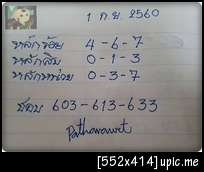 1 ก.ย. 2560
หลักร้อย 4-6-7
หลักสิบ 0-1-3
หลักหน่วย 0-3-7
ชอบ 603-613-633
Pathawawt
[552x414]upic.me